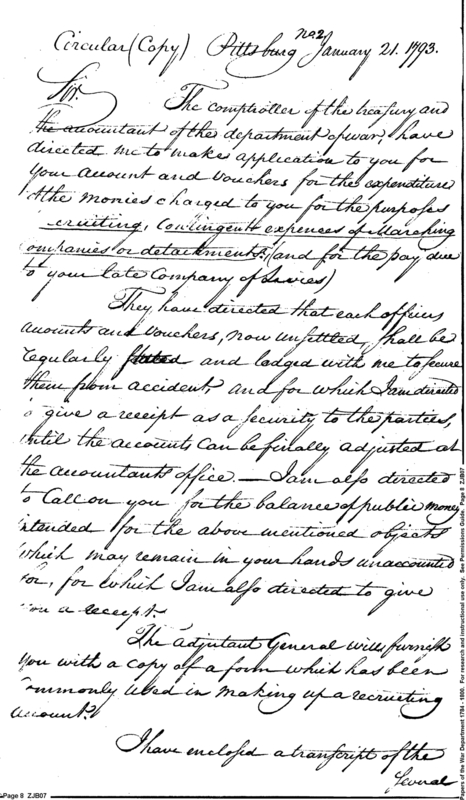 No 2
Circular (Copy) Pittsburg January 21. 1793.
Sir.
The comptroller of the treasury and
the accountant of the department of war, have
directed me to make application to you for
your account and vouchers for the expenditure
of the monies charged to you for the purposes
ecruiting, Contingent expences of Marching
ompanies or detachments, (and for the pay due
to your late Company of Levies)
They have directed that each officers
accounts and vouchers, now unsettled, shall be
regularly stated and lodged with me to secure
them from accident, and for which I am directed
to give a receipt as a security to the parties,
until the accounts can be finally adjusted at
the accountants office. — I am also directed
to Call on you for the balance of public money
intended for the above mentioned objects
which may remain in your hands unaccounted
for, for which I am also directed to give
you a receipt.
The adjutant General will furnish
you with a copy of a form which has been
ommonly used in making up a recruiting
account.
I have enclosed a transcript of the
Several
Page 8 ZJB07
Papers of the War Department 1784 - 1800. For research and instructional use only. See Permissions Guide. Page 8 ZJB07